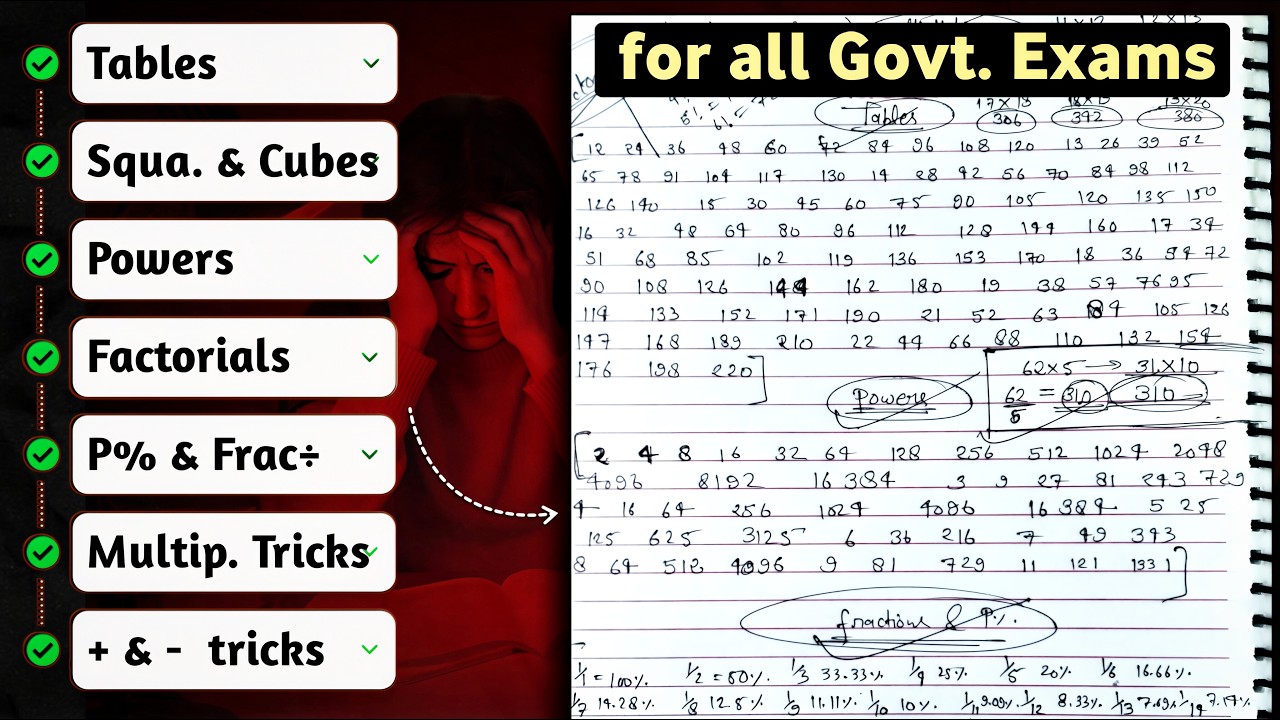 Tables
Squa. & Cubes
Powers
Factorials
P% & Frac÷
Multip. Tricks
+ & - tricks
for all Govt. Exams
Tables
17×18 18×19 19×20
306 342 380
12 24 36 48 60 72 84 96 108 120 13 26 39 52
65 78 91 104 117 130 14 28 42 56 70 84 98 112
126 140 15 30 45 60 75 90 105 120 135 150
16 32 48 64 80 96 112 128 144 160 17 34
51 68 85 102 119 136 153 170 18 36 54 72
90 108 126 144 162 180 19 38 57 76 95
114 133 152 171 190 21 52 63 84 105 126
147 168 189 210 22 44 66 88 110 132 154
176 198 220
62×5 → 31×10
62/5 = 310 310
Powers
2 4 8 16 32 64 128 256 512 1024 2048
4096 8192 16384 3 9 27 81 243 729
4 16 64 256 1024 4096 16384 5 25
125 625 3125 6 36 216 7 49 343
8 64 512 4096 9 81 729 11 121 1331
fractions & P%
1/1 = 100% 1/2 = 50% 1/3 33.33% 1/4 25% 1/5 20% 1/6 16.66%
1/7 14.28% 1/8 12.5% 1/9 11.11% 1/10 10% 1/11 9.09% 1/12 8.33% 1/13 7.69% 1/14 7.14%